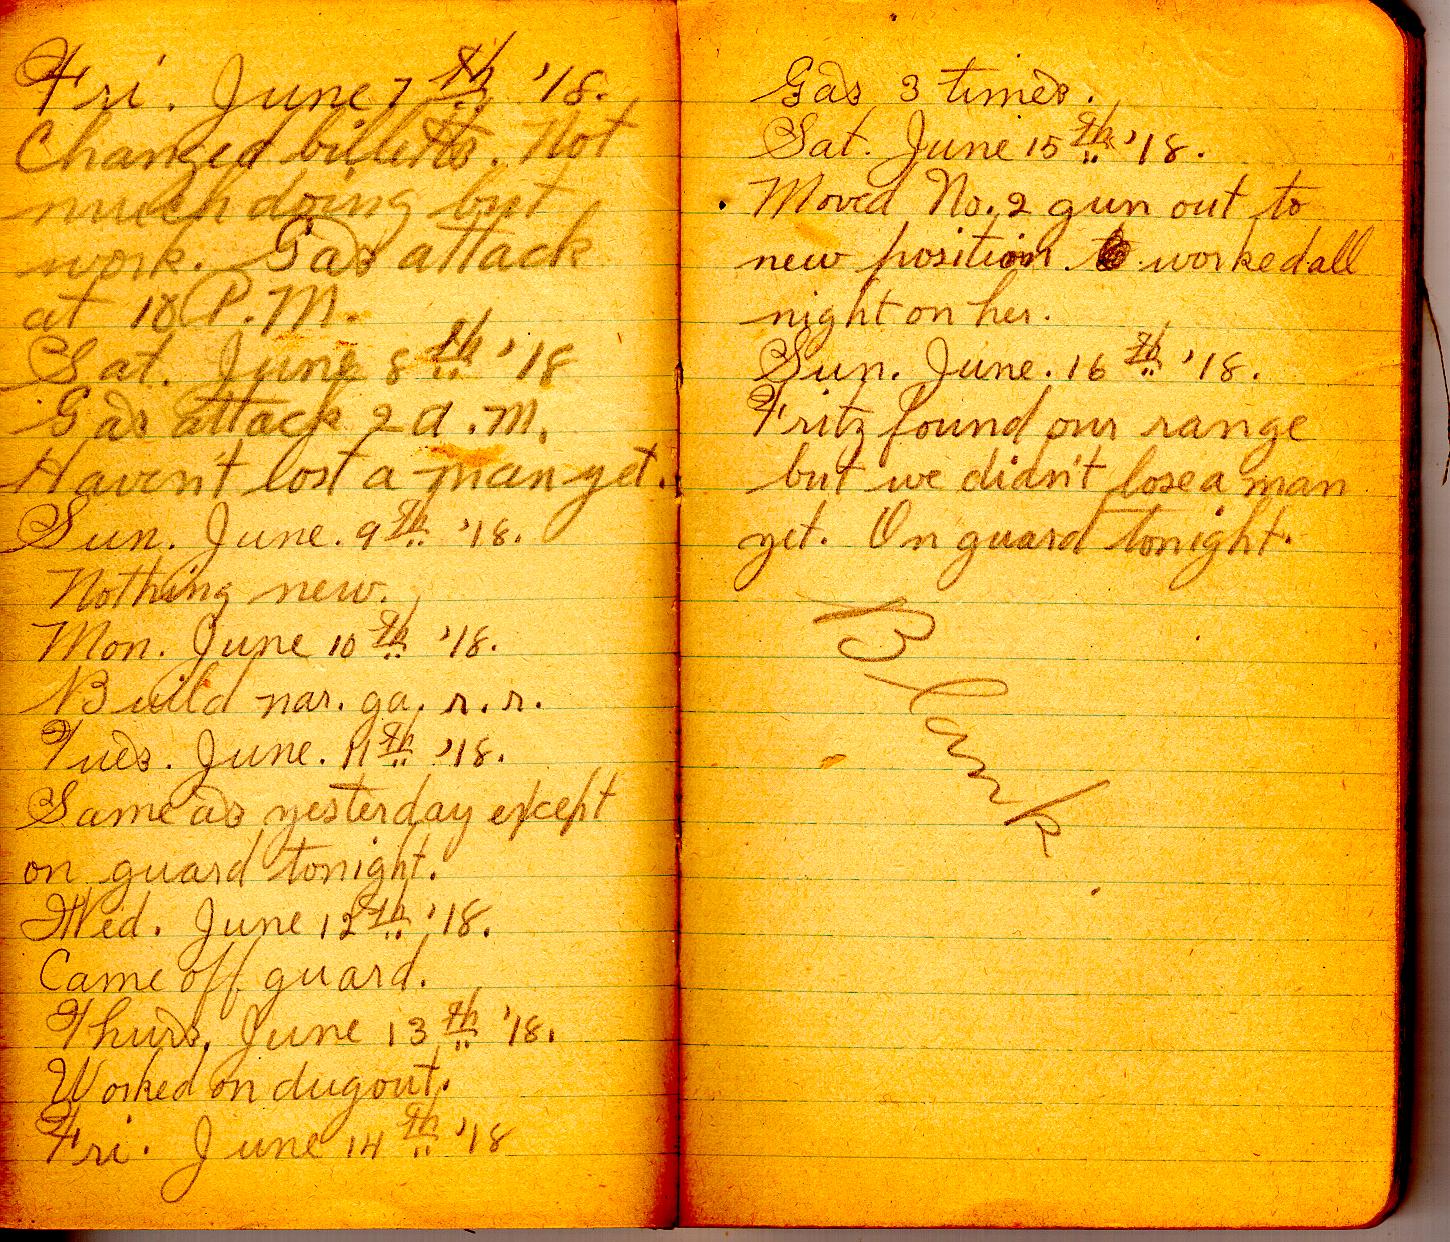 Fri. June 7th '18.
Changed billetts. Not
much doing but
work. Gas attack
at 10 P.M.
Sat. June 8th '18
Gas attack 2 a.M.
Haven't lost a man yet.
Sun. June. 9th '18.
Nothing new.
Mon. June 10th '18.
Build nar. ga. r. r.
Tues. June. 11th '18.
Same as yesterday except
on guard tonight.
Wed. June 12th '18.
Came off guard.
Thurs. June 13th '18.
Worked on dugout.
Fri. June 14th '18
Gas 3 times.
Sat. June 15th '18.
Moved No. 2 gun out to
new position worked all
night on her.
Sun. June. 16th '18.
Fritz found our range
but we didn't lose a man
yet. On guard tonight.
Blank